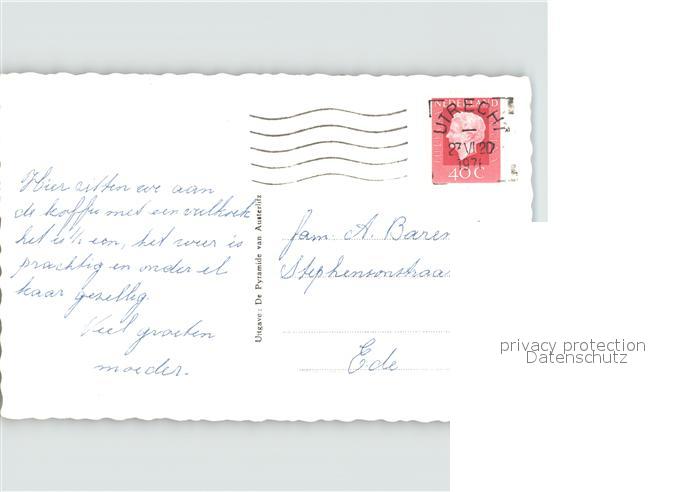 NEDERLAND
UTRECHT
27 VI 20
40 C
Hier zitten we aan
de koffie met een vulkoek
het is ½ een, het weer is
prachtig en onder el
kaar gezellig.
Veel groeten
moeder.
Uitgave: De Pyramide van Austerlitz
Fam. A. Baren
Stephensonstraa
Ede
privacy protection
Datenschutz